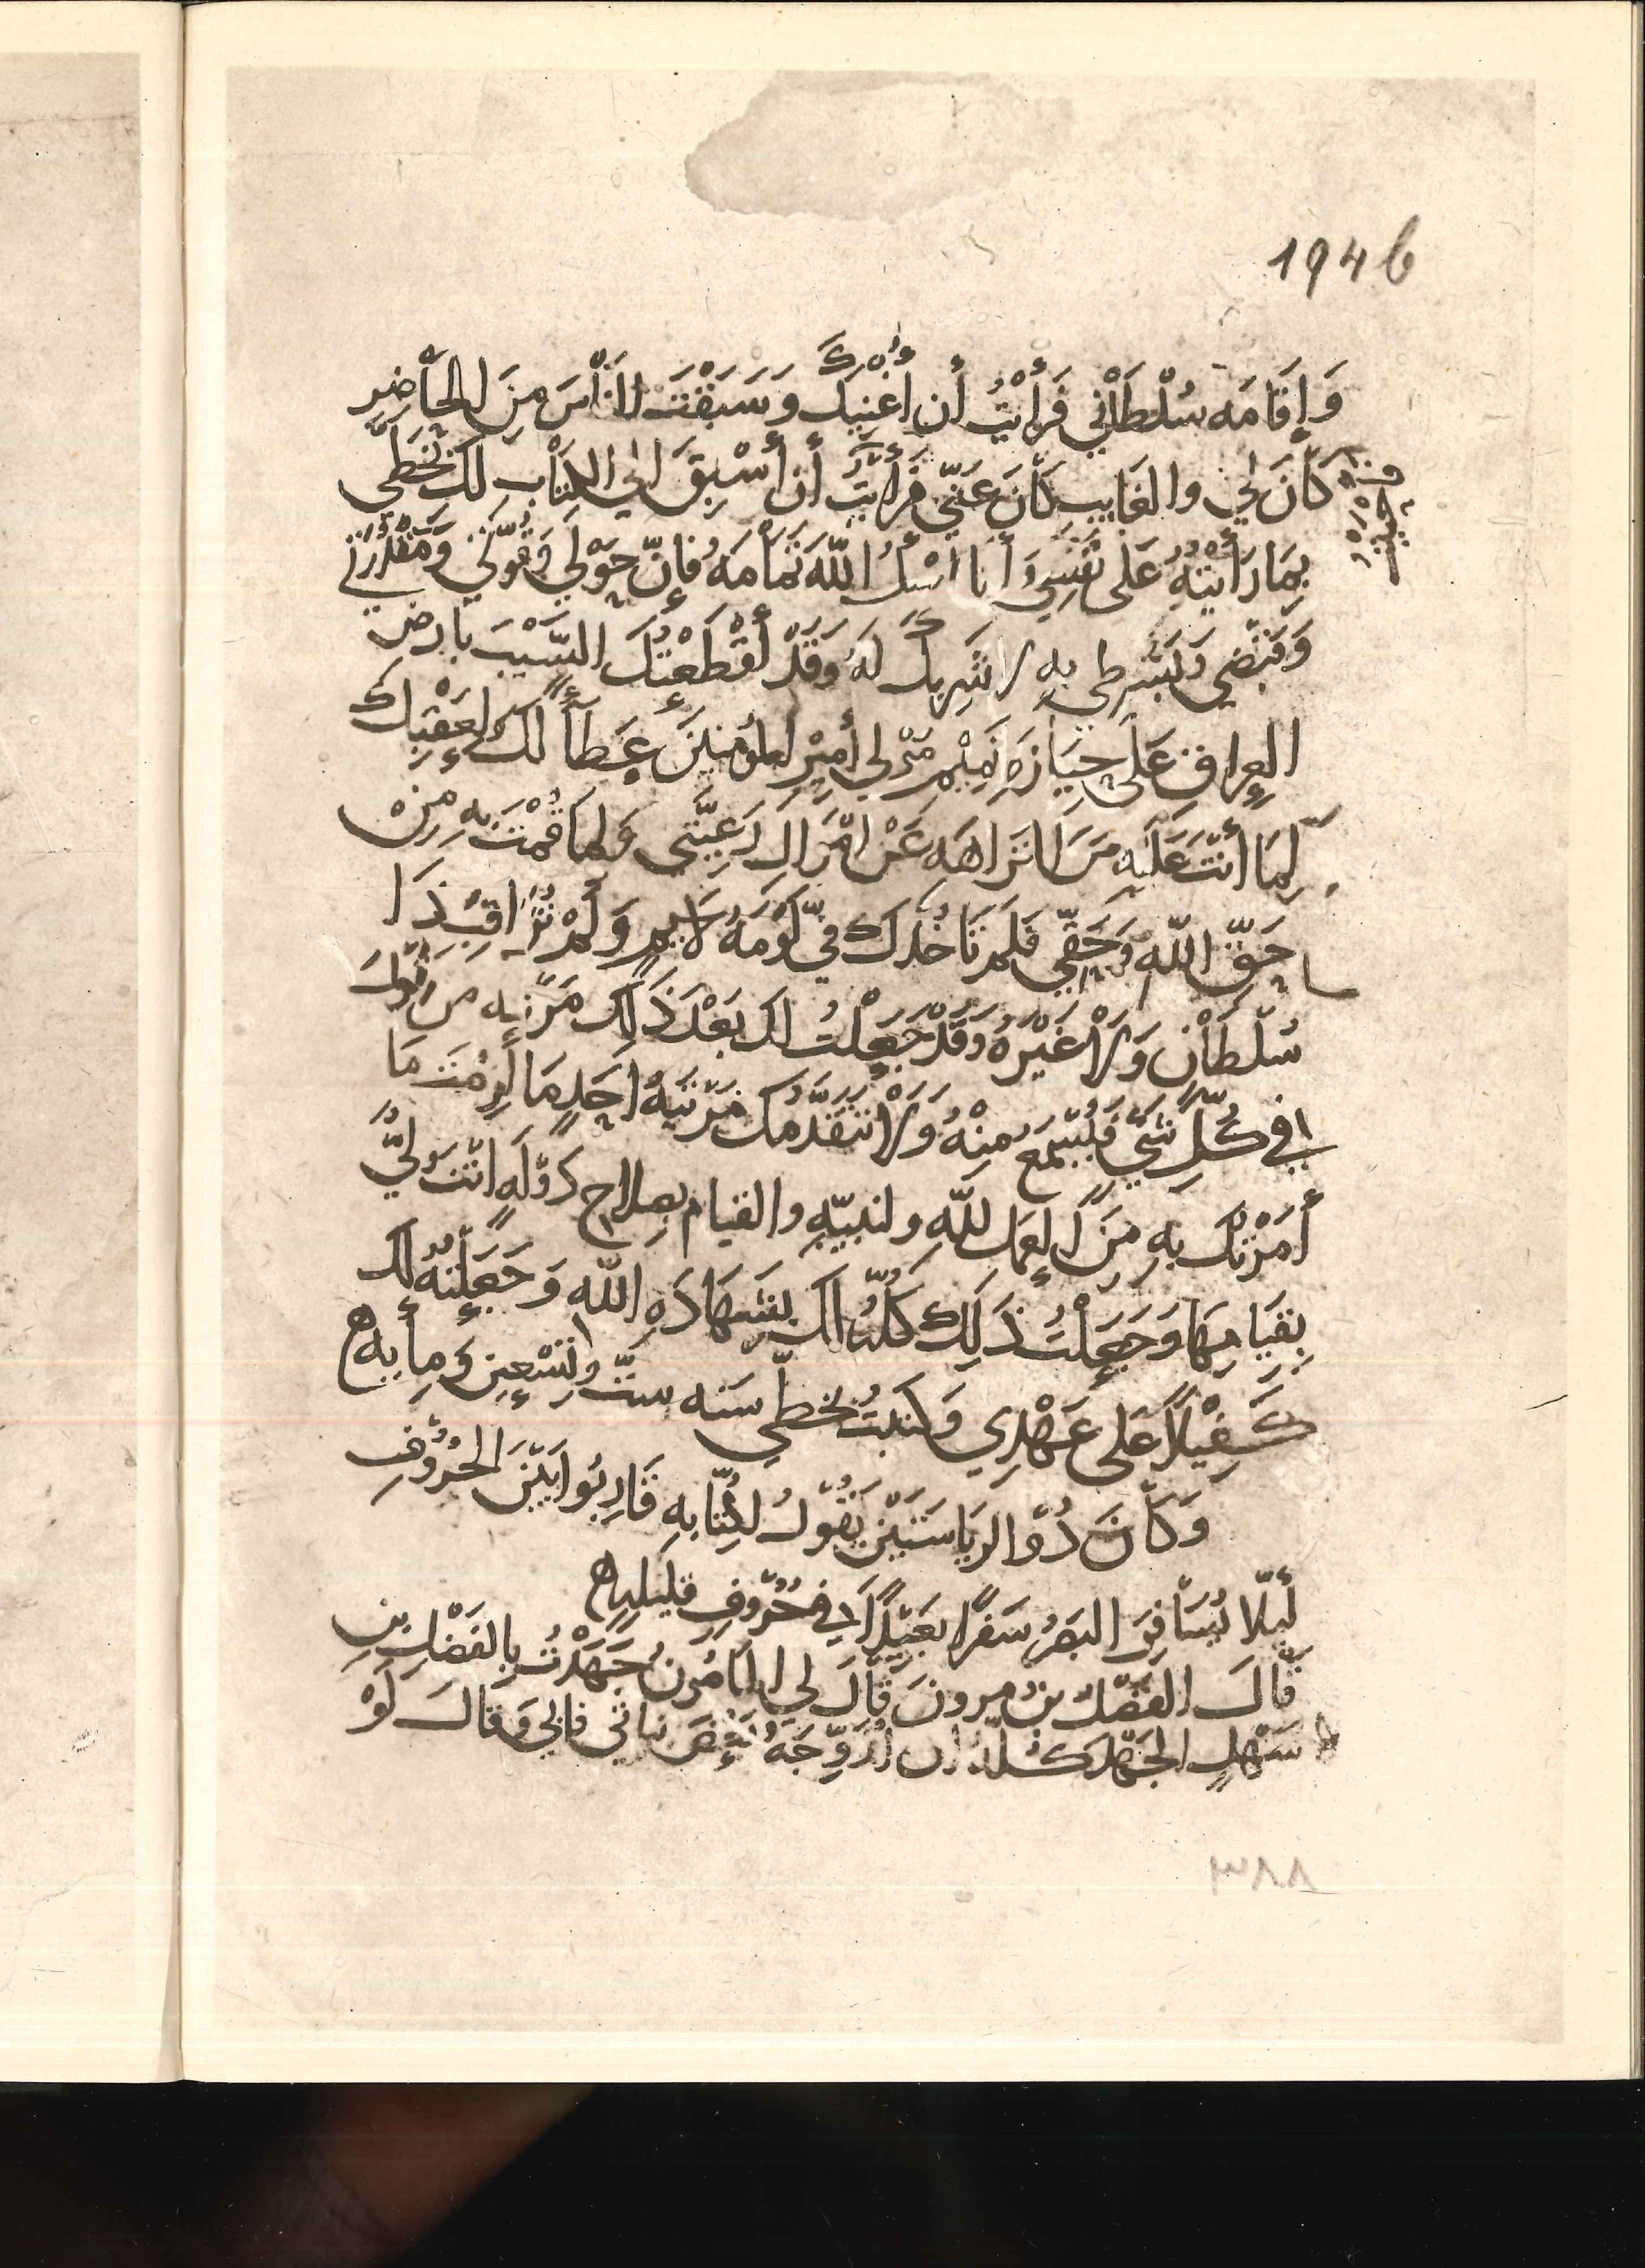 194b
وَإِقَامَه سُلْطَانِي فَرَأَيْتُ أن أُغْنِيكَ وَسَبَقْتَ النَّاسَ مِنَ الحَاضِرِ
كَانَ لِي والغَايِب كَانَ عَنِّي فَرَأَيْتُ أن أَسْبِقَ إلي الكِتَابِ لك بخَطِّي
بِمَا رَأَيْتُهُ عَلى نَفْسِي وَأنا أسْلُ اللهَ تَمَامَهُ فَإِنَّ حَوْلِي وَقُوَّتِي وَمَقْدُرَتي
وَقَبْضي وَبَسْطي بِهِ لا شَرِيكَ لَهُ وَقَدْ أَقْطَعْتُكَ السَّيْبَ بأرض
العِراقِ عَلى حِيَازَهِ تَمِيْم مَوْلى أمِيْرِ المُؤْمِنِيْنَ عَطَاءً لَكَ وَلِعَقِبِكَ
لِمَا أنْتَ عَلَيهِ مِنَ النَزَاهَه عَنْ امْوَالِ رَعِيَّتِي وَلِمَا قُمْتَ بِهِ مِنْ
حَقِّ اللهِ وَحَقِّي فَلَم تَأخُذْكَ فِي لَوْمَهُ لايِم وَلَمْ تُرَاقِبْ ذَا
سُلْطَانٍ وَلا غَيْرَهُ وَقَدْ جَعَلْتُ لك بَعْدَ ذَلِك مَرْتبه من يَقُولُ
في كُلِّ شَيٍ فَيُسْمَعُ مِنْهُ وَلا تَتَقَدَّمُكَ مَرْتَبَةُ احَدٍ مَا لَزِمْتَ مَا
أمَرْتُكَ بِهِ مِنَ العَمَلِ للهِ ولنبيّهِ والقيام بصلاح دَوْلَهٍ انْتَ وَلِيُّ
بِقيَامِهَا وَجَعَلْتُ ذَلِكَ كُلَّهُ لك بشَهَادَهِ اللهِ وَجَعَلْتُهُ لَك
كَفِيْلاً عَلى عَهْدِي وَكتبتُ بخطِّي سَنه ستّ وَتِسْعِيْن وَمِايه
وَكَانَ ذُوْ الرِيَاسَتَيْنِ يَقُوْلُ لكُتَّابِهِ قَارِبُوا بَيْنَ الحُرُوْفِ
لَيْلا يُسَافِرَ البَصَرُ سَفَرًا بَعَيْدًا فِي حُرُوفٍ قلِيلهٍ
قَالَ الفَضْل بنُ مرونَ قَالَ لي المَامُونُ جَهَدْتُ بِالفَضْلِ بن
سَهْلٍ الجَهْدَ كُلَّهُ ان أُزَوِّجَهُ بَعْضَ بناتي فابى وَقَالَ لَوْ
٣٨٨